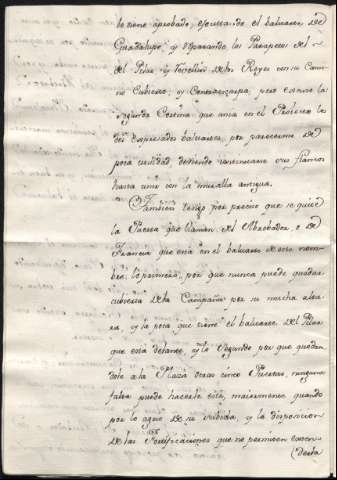 lo tiene aprobado, ejecutando el baluarte de
Guadalupe, y reparando los Parapetos del
del Pilar, y Rebellin de los Reyes con su Cami-
no Cubierto, y Contraescarpa, pero escuso la
segunda Cortina que una en el Proiecto los
dos expresados baluartes, por parecerme de
poca utilidad, deviendo continuarse sus flancos
hasta unir con la muralla antigua.
Tambien tengo por preciso que se quite
la Puerta que llaman del Abrebador, o de
Francia que está en el baluarte de este nom-
bre: lo primero, por que nunca puede quedar
cubierta de la Campaña por su mucha altu-
ra, y la poca que tiene el baluarte del Pilar
que está delante, y lo segundo por que quedan-
dole a la Plaza otras cinco Puertas, ninguna
falta puede hacerle esta, maiormente quando
por lo agrio de su subida, y la disposicion
de las Fortificaciones que no permiten exten-
derla